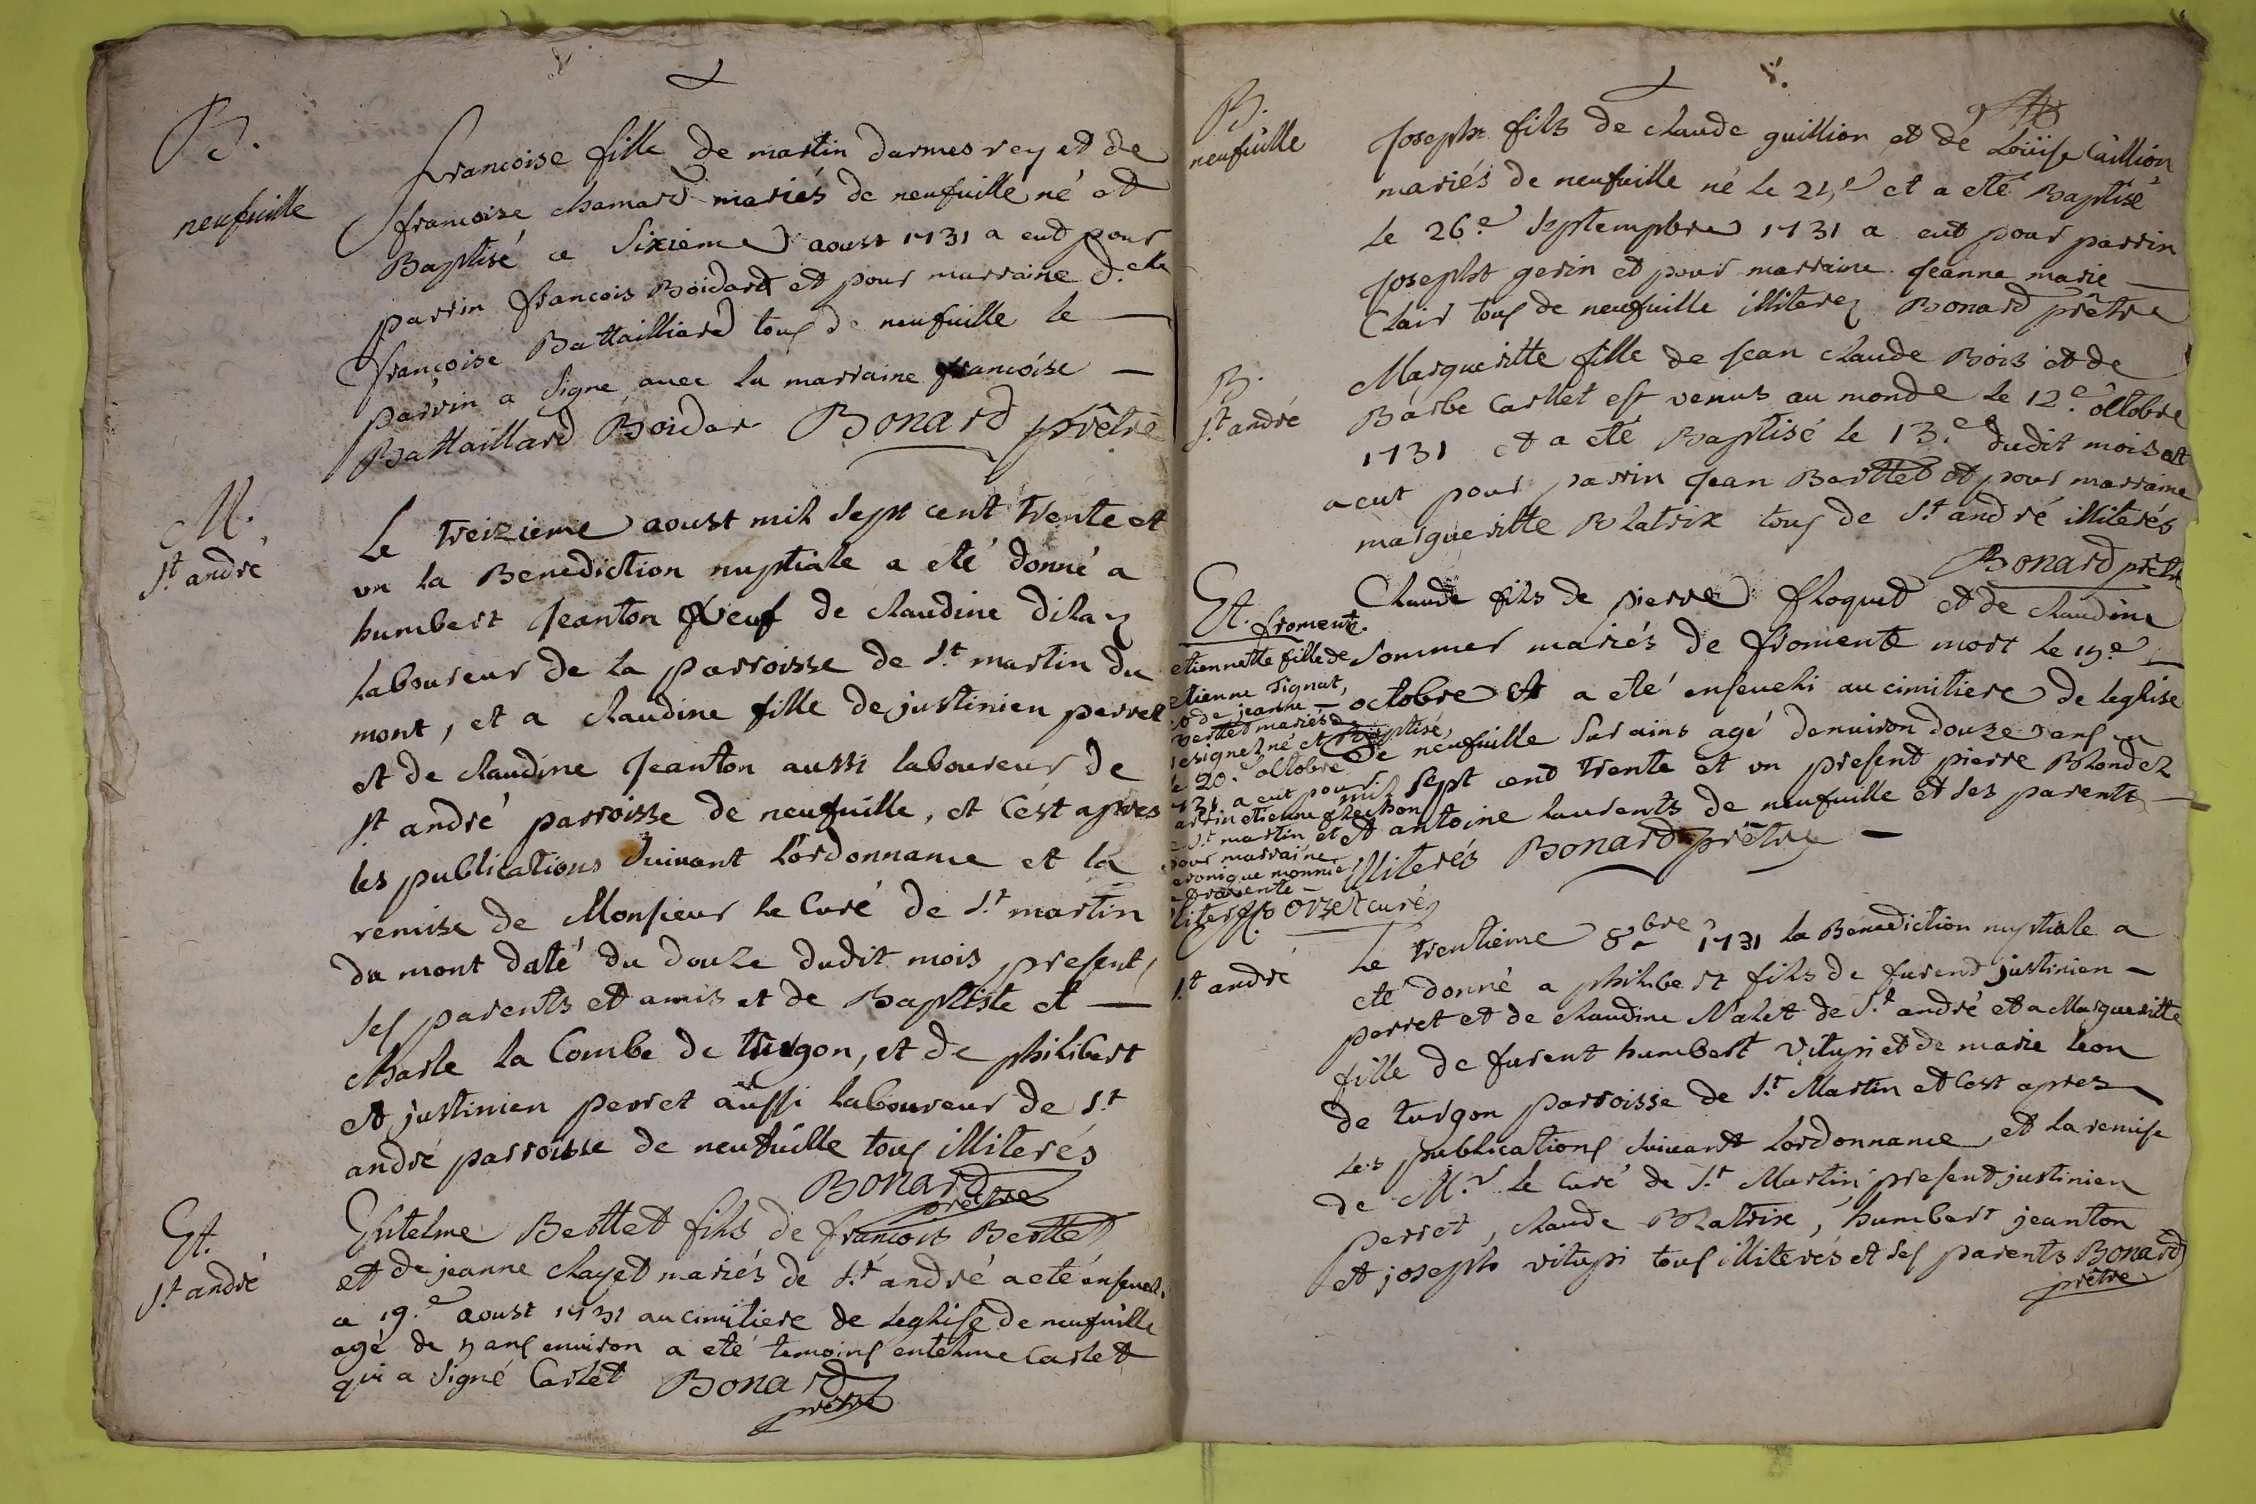 B.
neufuille
francoise fille de martin darmes rey et de
francoise chamard mariés de neufuille né et
Baptisé ce Sixieme aoust 1731 a eut pour
parrin francois Boidard et pour marraine d.elle
françoise Battailliard tous de neufuille le —
parrin a Signe auec la marraine francóise —
Battaillard Boidar Bonard prêtre
M.
S.t andré
Le treizieme aoust mil Sept cent trente et
un la Benediction nuptiale a eté donné a
humbert Jeanton veuf de claudine dilaz
laboureur de la parroisse de S.t martin du
mont, et a claudine fille de justinien perret
et de claudine Jeanton aussi laboureur de
S.t andré parroisse de neufuille, et C'est apres
les publications Suiuant L'ordonnance et la
remise de Monsieur le Curé de S.t martin
du mont daté du douze dudit mois present,
Ses parents et amis et de Baptiste et —
charle la Combe de turgon, et de philibert
et justinien perret aussi laboureur de S.t
andré parroisse de neufuille tous illiterés
Bonard
prêtre
Et.
S.t andré
Entelme Berttet fils de francois Berttet
et de jeanne clayet mariés de S.t andré a eté enseueli
ce 19.e aoust 1731 au cimitiere de Leglise de neufuille
agé de 5 ans enuiron a eté temoins entelme Carlet
qui a Signé Carlet Bonard
prêtre
8.
B.
neufuille
Joseph fils de claude guillion et de Loüise Caillion
mariés de neufuille né le 25.e et a eté Baptisé
le 26.e Septempbre 1731 a eut pour parrin
Josepht gerin et pour marraine Jeanne marie —
Clair tous de neufuille illiterez Bonard prêtre
B.
S.t andré
Margueritte fille de Jean claude Bois et de
Barbe Carlet est venus au monde le 12.e octobre
1731 et a eté Baptisé le 13.e dudit mois et
a eut pour parrin Jean Berttet et pour marraine
margueritte Blatrix tous de S.t andré illiterés
Bonard prêtre
Et. fromente.
Claude fils de pierre floquet et de claudine
Sommer mariés de fromente mort le 19.e —
octobre et a eté enseueli au cimitiere de leglise
de neufuille Sur ains agé denuiron douze ans
mil Sept cend trente et un present pierre Blondel
et antoine laurents de neufuille et Ses parents —
illiterés Bonard prêtre —
etiennette fille de
etienne Tignat,
et de jeanne —
verttet mariés a
resignel né et Baptisé,
le 20.e octobre
1731. a eut pour
parrin etienne flechon
de S.t martin et
pour marraine
veronique monnie
de fromente —
illiterés. orset curé
S.t andré
Le trentieme 8.bre 1731 la Benediction nuptiale a
eté donné a philibert fils de furend justinien —
perret et de claudine Nalet de S.t andré et a Margueritte
fille de furent humbert vitupi et de marie leon
de turgon parroisse de S.t Martin et C'est apres
les publications Suiuant Lordonnance, et la remise
de M.r le Curé de S.t Martin present justinien
perret, claude Blatrix, humbert jeanton
et joseph vitupi tous illiterés et Ses parents Bonard
prêtre